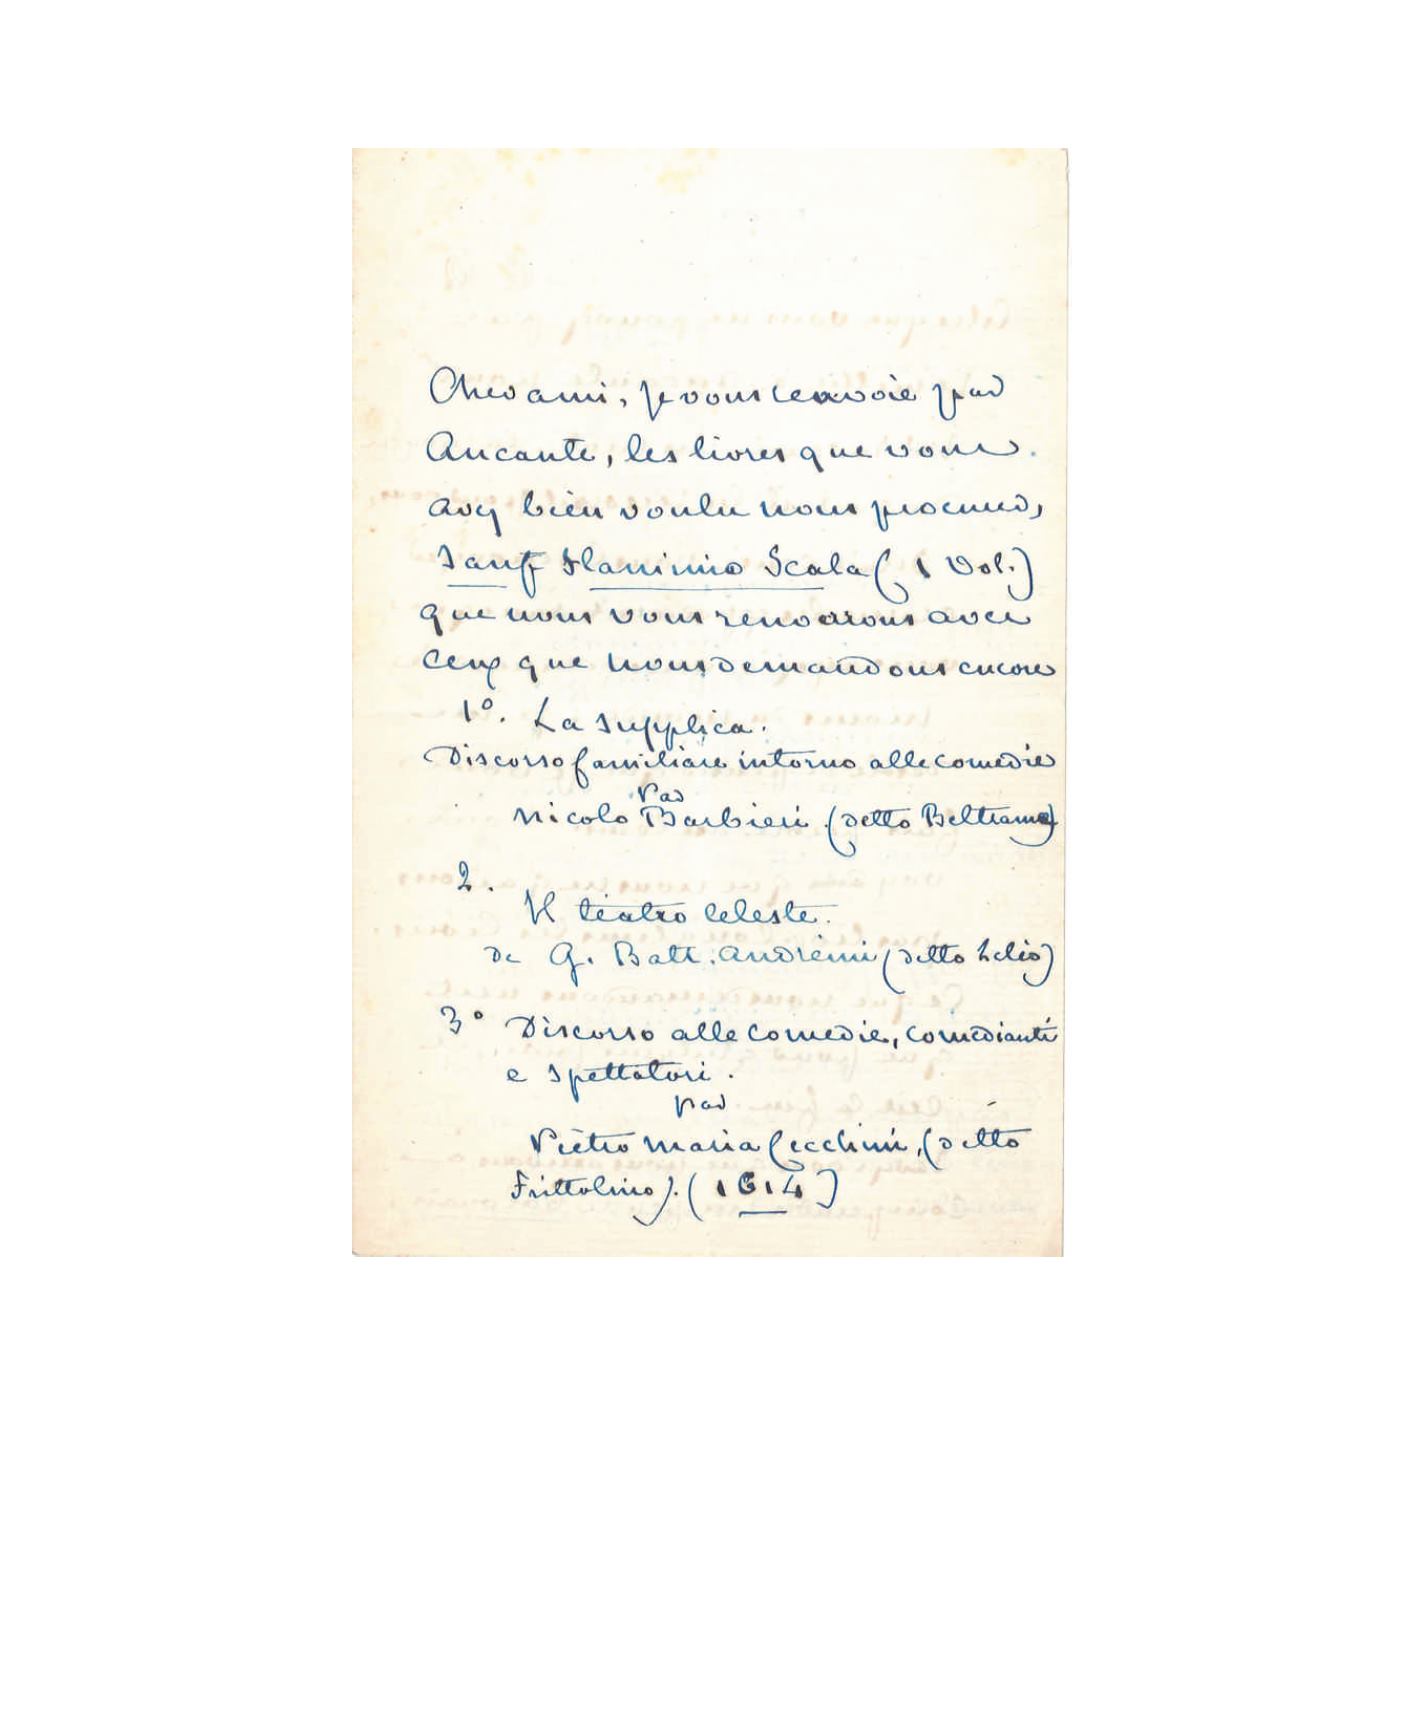 Cher ami, je vous renvoie par
Aucante, les livres que vous
avez bien voulu nous procurer,
sauf Flaminio Scala (1 Vol.)
que nous vous renverrons avec
ceux que nous demandons encore
1º. La supplica.
Discorso familiare intorno alle comedie
par
Nicolo Barbieri (detto Beltrame)
2.
Il teatro celeste.
de G. Batt. Andreini (detto Lelio)
3º Discorso alle comedie, comedianti
e spettatori.
par
Pietro Maria Cecchini, (detto
Frittolino). (1614)